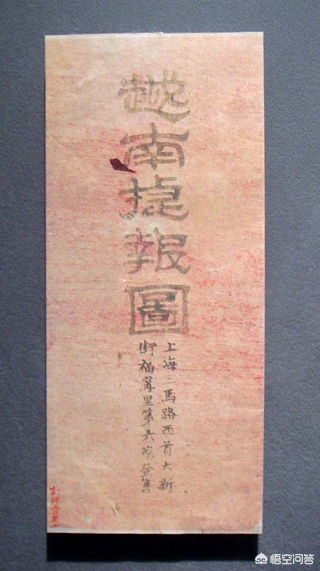 越南捷報圖
上海三馬路西首大新
街福寗里第六家發售
悟空问答